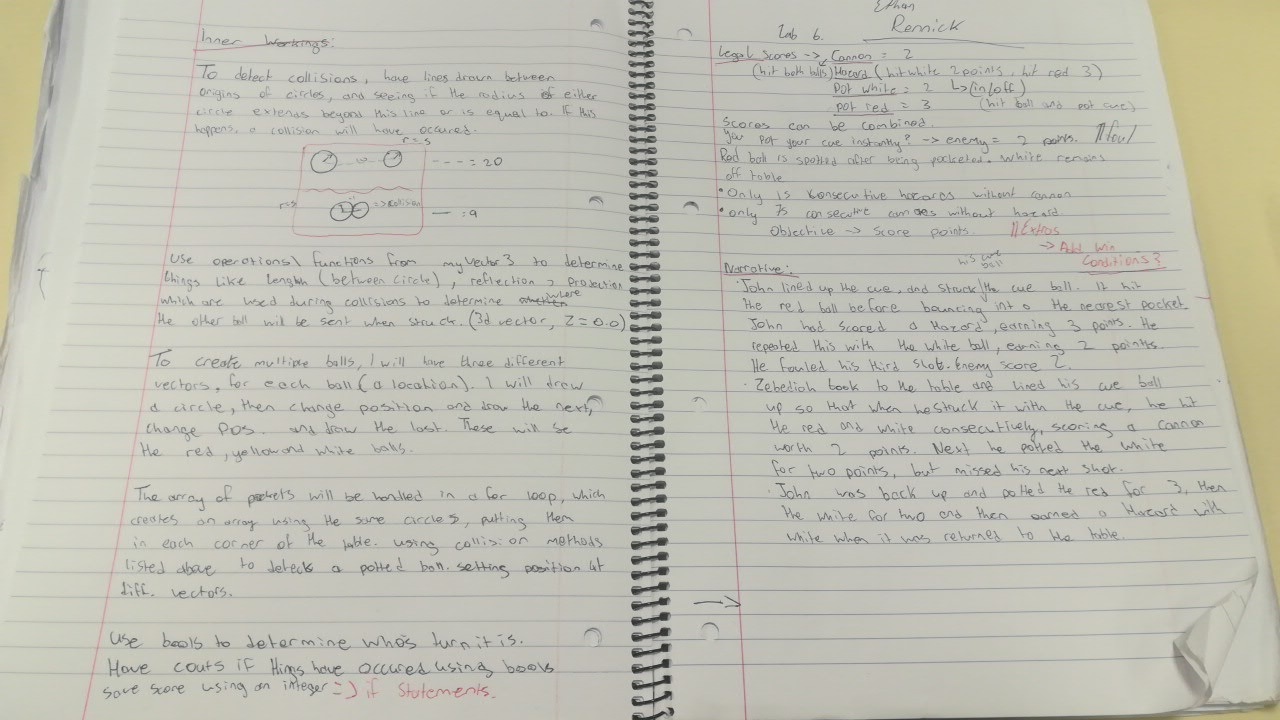 Inner Workings:
To detect collisions, have lines drawn between
origins of circles, and seeing if the radius of either
circle extends beyond this line or is equal to. If this
happens, a collision will have occured.
r=5
---- = 20
r=5
=>collision
— = 9
Use operational functions from myvector3 to determine
things like length (between circle), reflection > projection
which are used during collisions to determine where
the other ball will be sent when struck. (3d vector, Z=0.0)
To create multiple balls, I will have three different
vectors, for each ball (a location). I will draw
a circle, then change position and draw the next,
change pos. and draw the last. These will be
the red, yellow and white balls.
The array of pockets will be handled in a for loop, which
creates an array using the same circles, putting them
in each corner of the table. using collision methods
listed above to detect a potted ball. setting position at
diff. vectors.
Use bools to determine who's turn it is.
Have couts if things have occured using bools
save score using an integer => if statements.
Ethan
Rennick
Lab 6.
Legal Scores -> Cannon = 2
(hit both balls) Hazard (hit white 2 points, hit red 3)
Pot white = 2 ↳ (in/off)
pot red = 3 (hit ball and pot cue)
Scores can be combined.
You pot your cue instantly? -> enemy = 2 points. //foul
Red ball is spotted after being pocketed. White remains
off table
• Only 15 consecutive hazards without cannon
• only 75 consecutive cannons without hazard
Objective -> Score points. //Extras
-> Add win
Conditions?
Narrative:
his cue
ball
· John lined up the cue, and struck the cue ball. It hit
the red ball before bouncing into the nearest pocket.
John had scored a Hazard, earning 3 points. He
repeated this with the white ball, earning 2 points.
He fouled his third shot. Enemy score 2.
· Zebediah took to the table and lined his cue ball
up so that when he struck it with the cue, he hit
the red and white consecutively, scoring a cannon
worth 2 points. Next he potted the white
for two points, but missed his next shot.
· John was back up and potted the red for 3, then
the white for two and then earned a Hazard with
white when it was returned to the table.